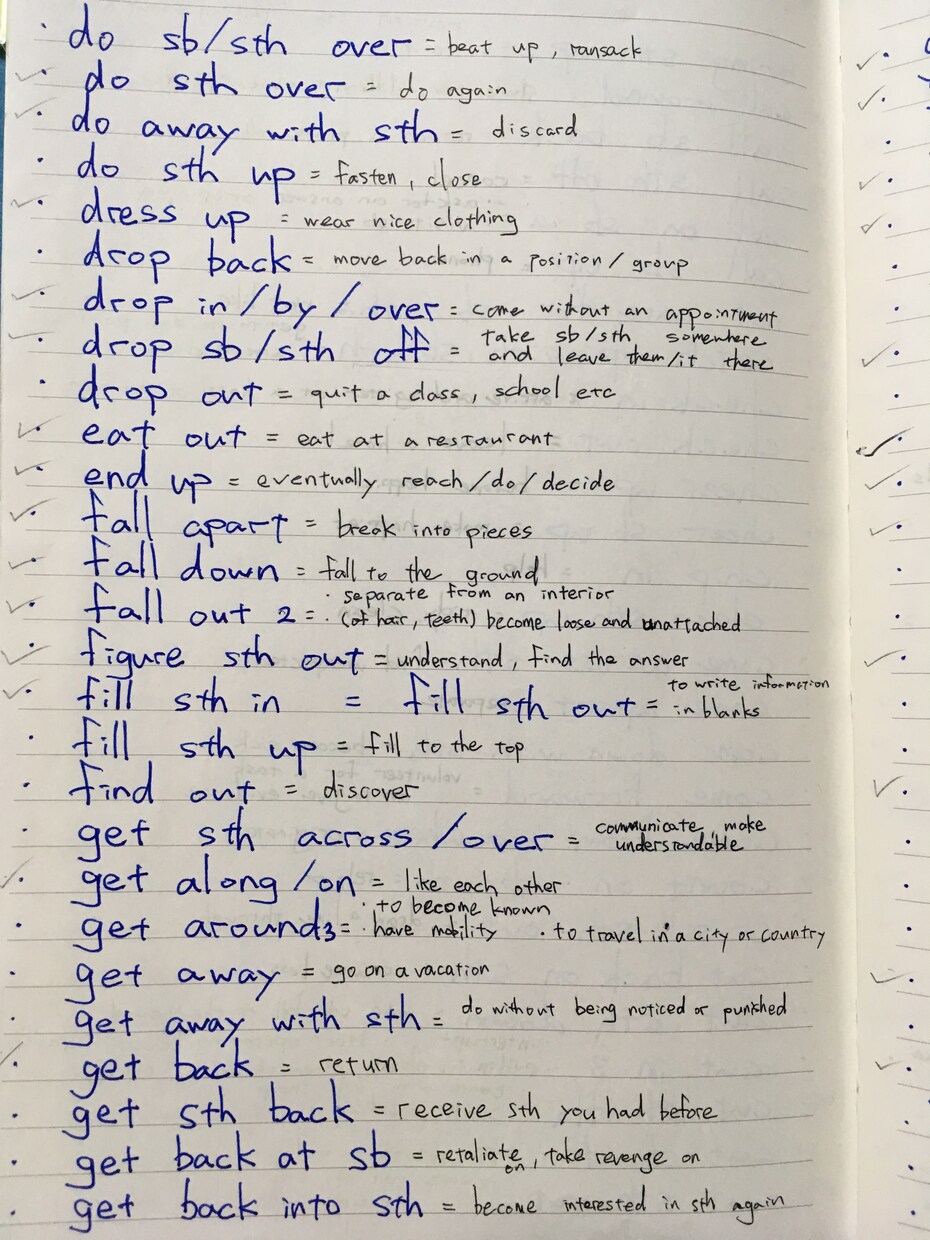 do sb/sth over = beat up, ransack
do sth over = do again
do away with sth = discard
do sth up = fasten, close
dress up = wear nice clothing
drop back = move back in a position/group
drop in/by/over = come without an appointment
drop sb/sth off = take sb/sth somewhere and leave them/it there
drop out = quit a class, school etc
eat out = eat at a restaurant
end up = eventually reach/do/decide
fall apart = break into pieces
fall down = fall to the ground
fall out 2 = · separate from an interior
· (of hair, teeth) become loose and unattached
figure sth out = understand, find the answer
fill sth in = fill sth out = to write information in blanks
fill sth up = fill to the top
find out = discover
get sth across/over = communicate, make understandable
get along/on = like each other
get around 3 = · to become known
· have mobility · to travel in a city or country
get away = go on a vacation
get away with sth = do without being noticed or punished
get back = return
get sth back = receive sth you had before
get back at sb = retaliate on, take revenge on
get back into sth = become interested in sth again